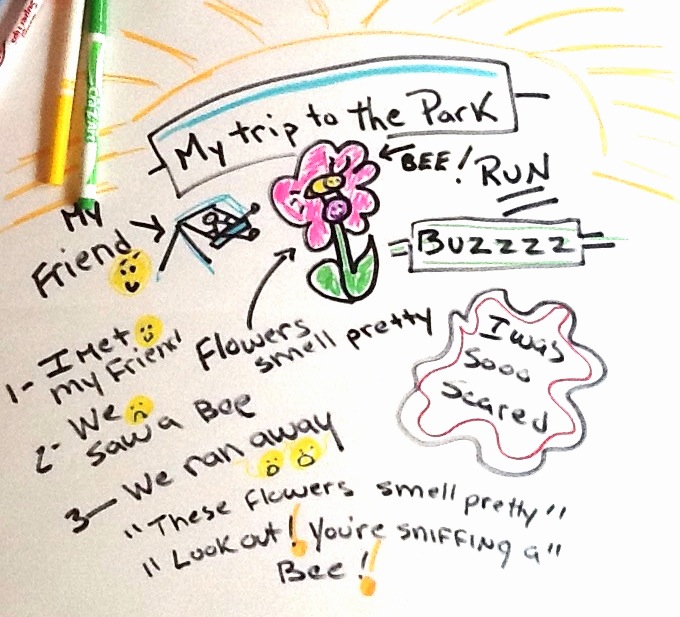 My trip to the Park
BEE! RUN
My
Friend
Buzzzz
Flowers
smell pretty
I was
sooo
scared
1- I met
my Friend
2- We
saw a Bee
3- We ran away
"These flowers smell pretty"
"Look out! You're sniffing a"
Bee!